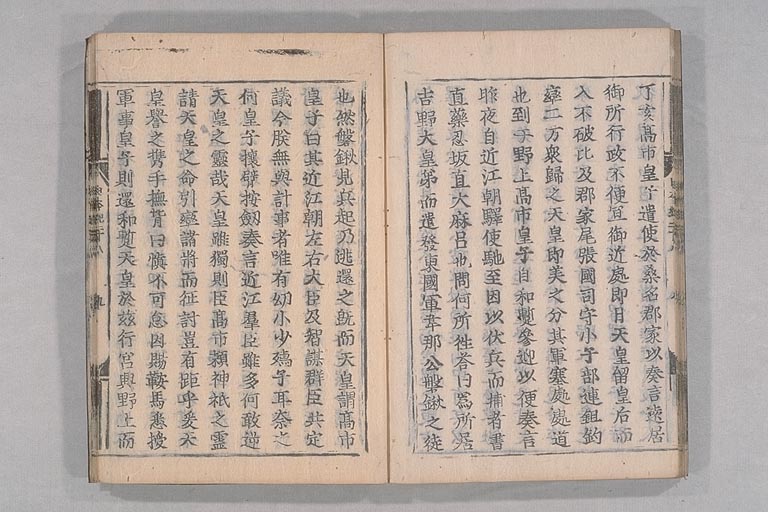 丁亥高市皇子遣使於桑名郡家以奏言遠居
御所行政不便宜御近處即日天皇留皇后而
入不破比及郡家尾張國司守小子部連鉏鈎
率二万衆歸之天皇即美之分其軍塞處處道
也到于野上高市皇子自和蹔參迎以便奏言
昨夜自近江朝驛使馳至因以伏兵而捕者書
直藥忍坂直大麻呂也問何所徃荅曰爲所居
吉野大皇弟而遣發東國軍韋那公磐鍬之徒
也然磐鍬見兵起乃逃還之既而天皇謂高市
皇子曰其近江朝左右大臣及智謀群臣共定
議今朕無與計事者唯有幼小少孺子耳奈之
何皇子攘臂按劒奏言近江羣臣雖多何敢逆
天皇之靈哉天皇雖獨則臣高市頼神祇之靈
請天皇之命引率諸將而征討豈有距乎爰天
皇譽之携手撫背曰愼不可怠因賜鞍馬悉授
軍事皇子則還和蹔天皇於茲行宮興野上而